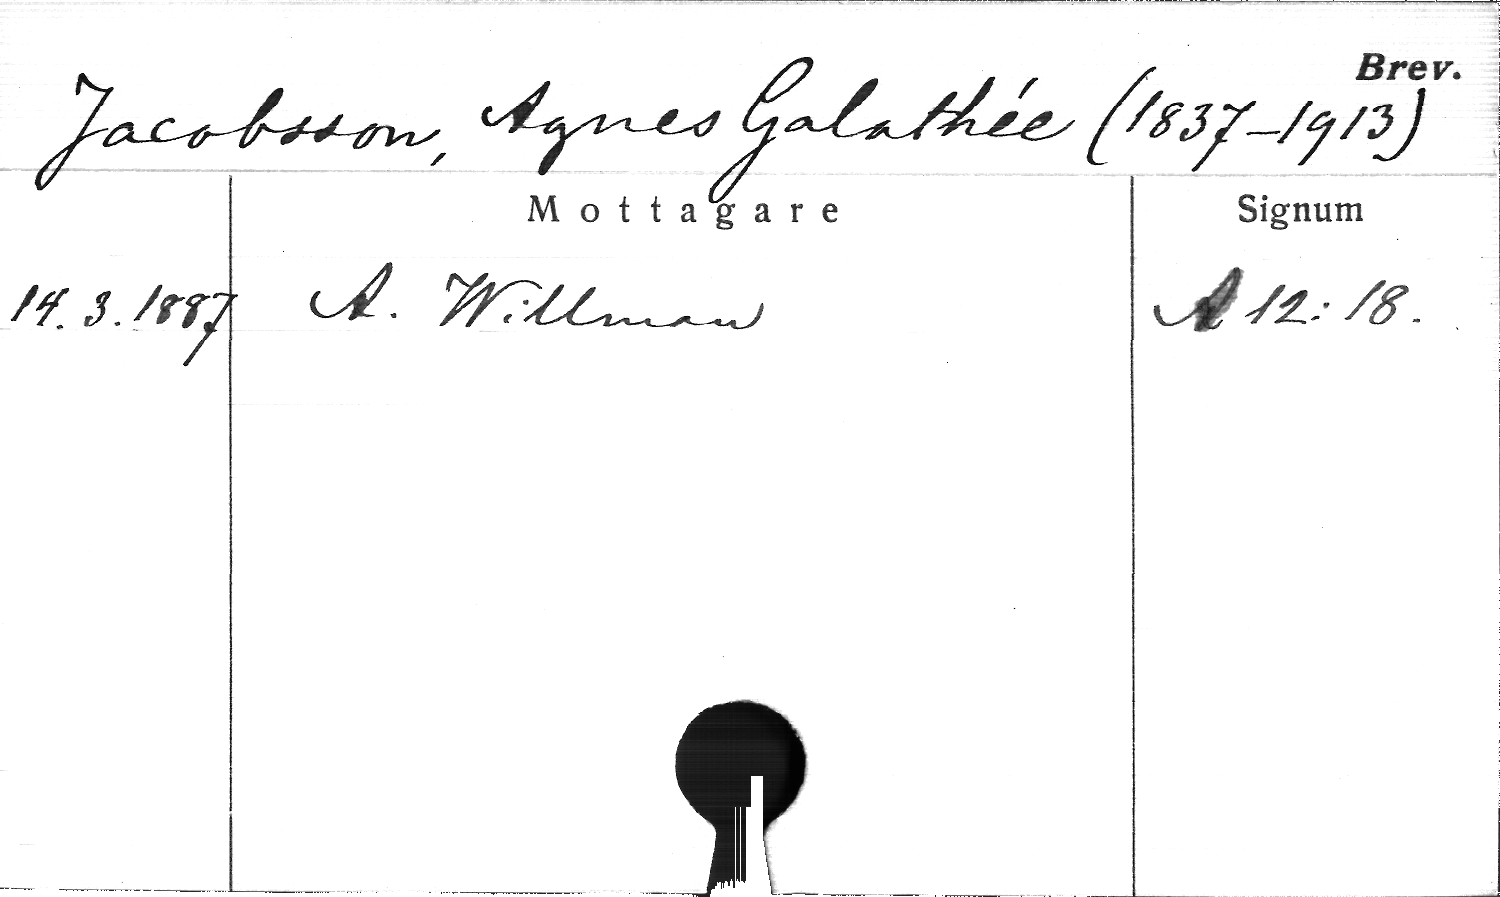 Brev.
Jacobsson, Agnes Galathée (1837-1913)
Mottagare Signum
14.3.1887 A. Willman A 12:18.